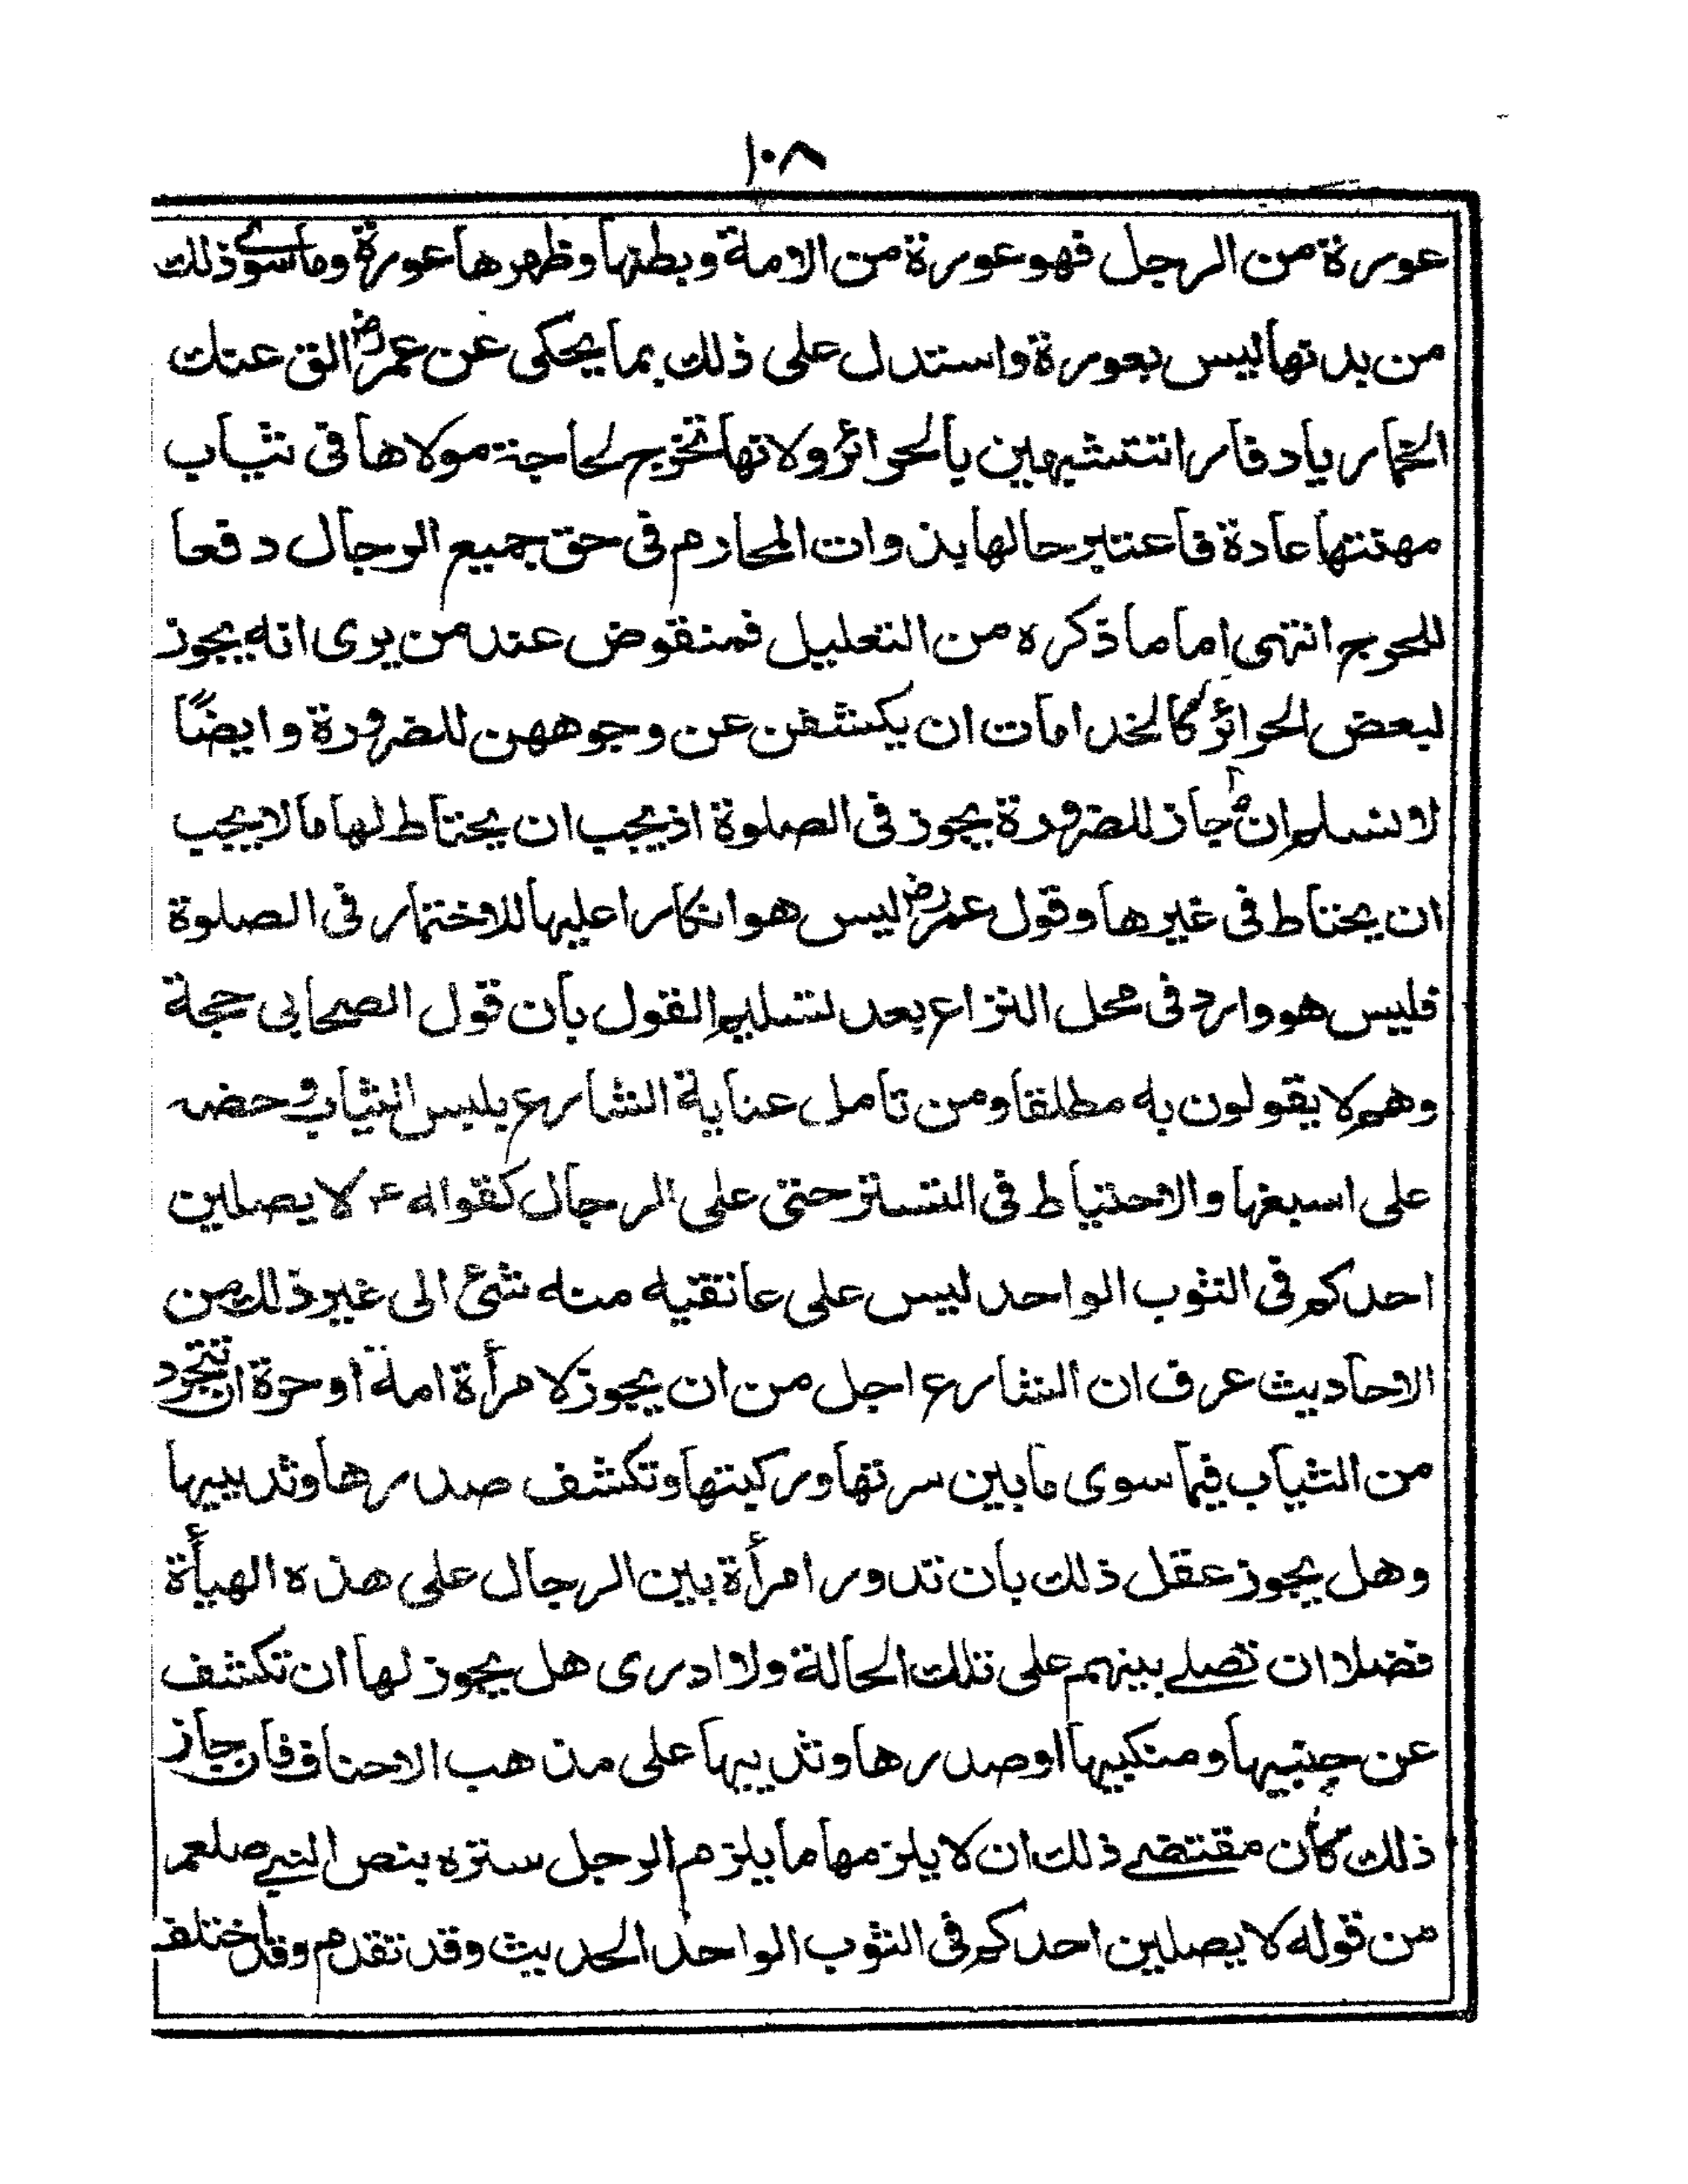 ١٠٨
عورة من الرجل فهو عورة من الامة وبطنها وظهرها عورة وما سوى ذلك
من بدنها ليس بعورة واستدل على ذلك بما يحكى عن عمرؓ الق عنك
الخمار يا دفار اتتشبهين بالحرائر ولانها تخرج لحاجة مولاها فى ثياب
مهنتها عادة فاعتبر حالها بذوات المحارم فى حق جميع الرجال دفعا
للحرج انتهى اما ما ذكره من التعليل فمنقوض عند من يرى انه يجوز
لبعض الحرائر كالخدامات ان يكشفن عن وجوههن للضرورة وايضًا
لا نسلم ان ما جاز للضرورة يجوز فى الصلوة اذ يجب ان يحتاط لها ما لا يجب
ان يحتاط فى غيرها وقول عمرؓ ليس هو انكارا عليها للاختمار فى الصلوة
فليس هو وارد فى محل النزاع بعد تسليم القول بان قول الصحابى حجة
وهم لا يقولون به مطلقا ومن تامل عناية الشارع بلبس الثياب وحضه
على اسبغها والاحتياط فى التستر حتى على الرجال كقواله ع لا يصلين
احدكم فى الثوب الواحد ليس على عاتقيه منه شئ الى غير ذلك من
الاحاديث عرف ان الشارع اجل من ان يجوز لامرأة امة او حرة ان تتجرد
من الثياب فيما سوى ما بين سرتها وركبتها وتكشف صدرها وثدييها
وهل يجوز عقل ذلك بان تدور امرأة بين الرجال على هذه الهيأة
فضلا ان تصلے بينهم على تلك الحالة ولا ادرى هل يجوز لها ان تكشف
عن جنبيها ومنكبيها او صدرها وثدييها على مذهب الاحناف فان جاز
ذلك كان مقتضے ذلك ان لا يلزمها ما يلزم الرجل ستره بنص النبے صلعم
من قوله لا يصلين احدكم فى الثوب الواحد الحديث وقد تقدم وقد اختلف